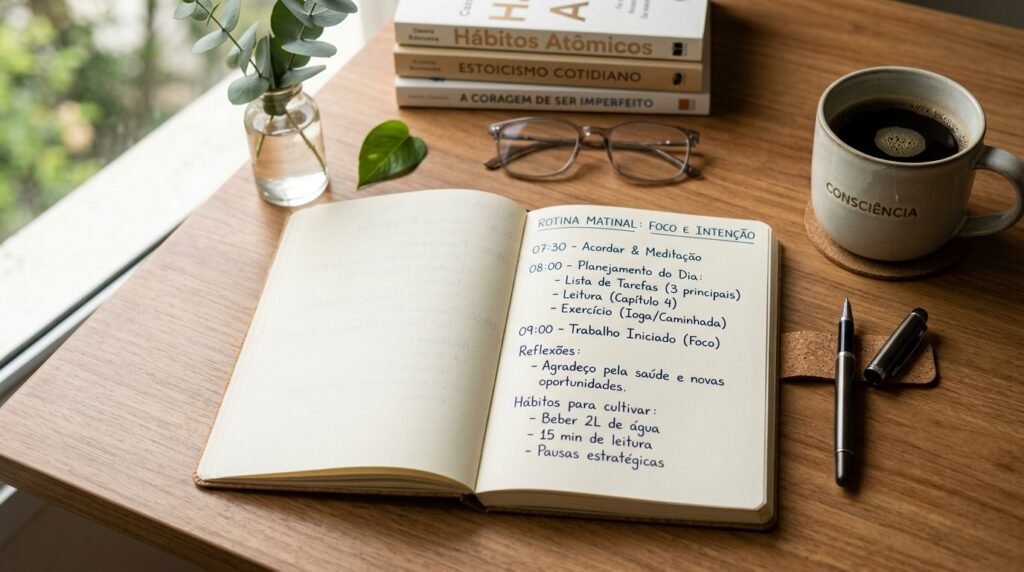 Hábitos Atômicos
ESTOICISMO COTIDIANO
A CORAGEM DE SER IMPERFEITO
CONSCIÊNCIA
ROTINA MATINAL: FOCO E INTENÇÃO
07:30 - Acordar & Meditação
08:00 - Planejamento do Dia:
- Lista de Tarefas (3 principais)
- Leitura (Capítulo 4)
- Exercício (Ioga/Caminhada)
09:00 - Trabalho Iniciado (Foco)
Reflexões:
- Agradeço pela saúde e novas
oportunidades.
Hábitos para cultivar:
- Beber 2L de água
- 15 min de leitura
- Pausas estratégicas